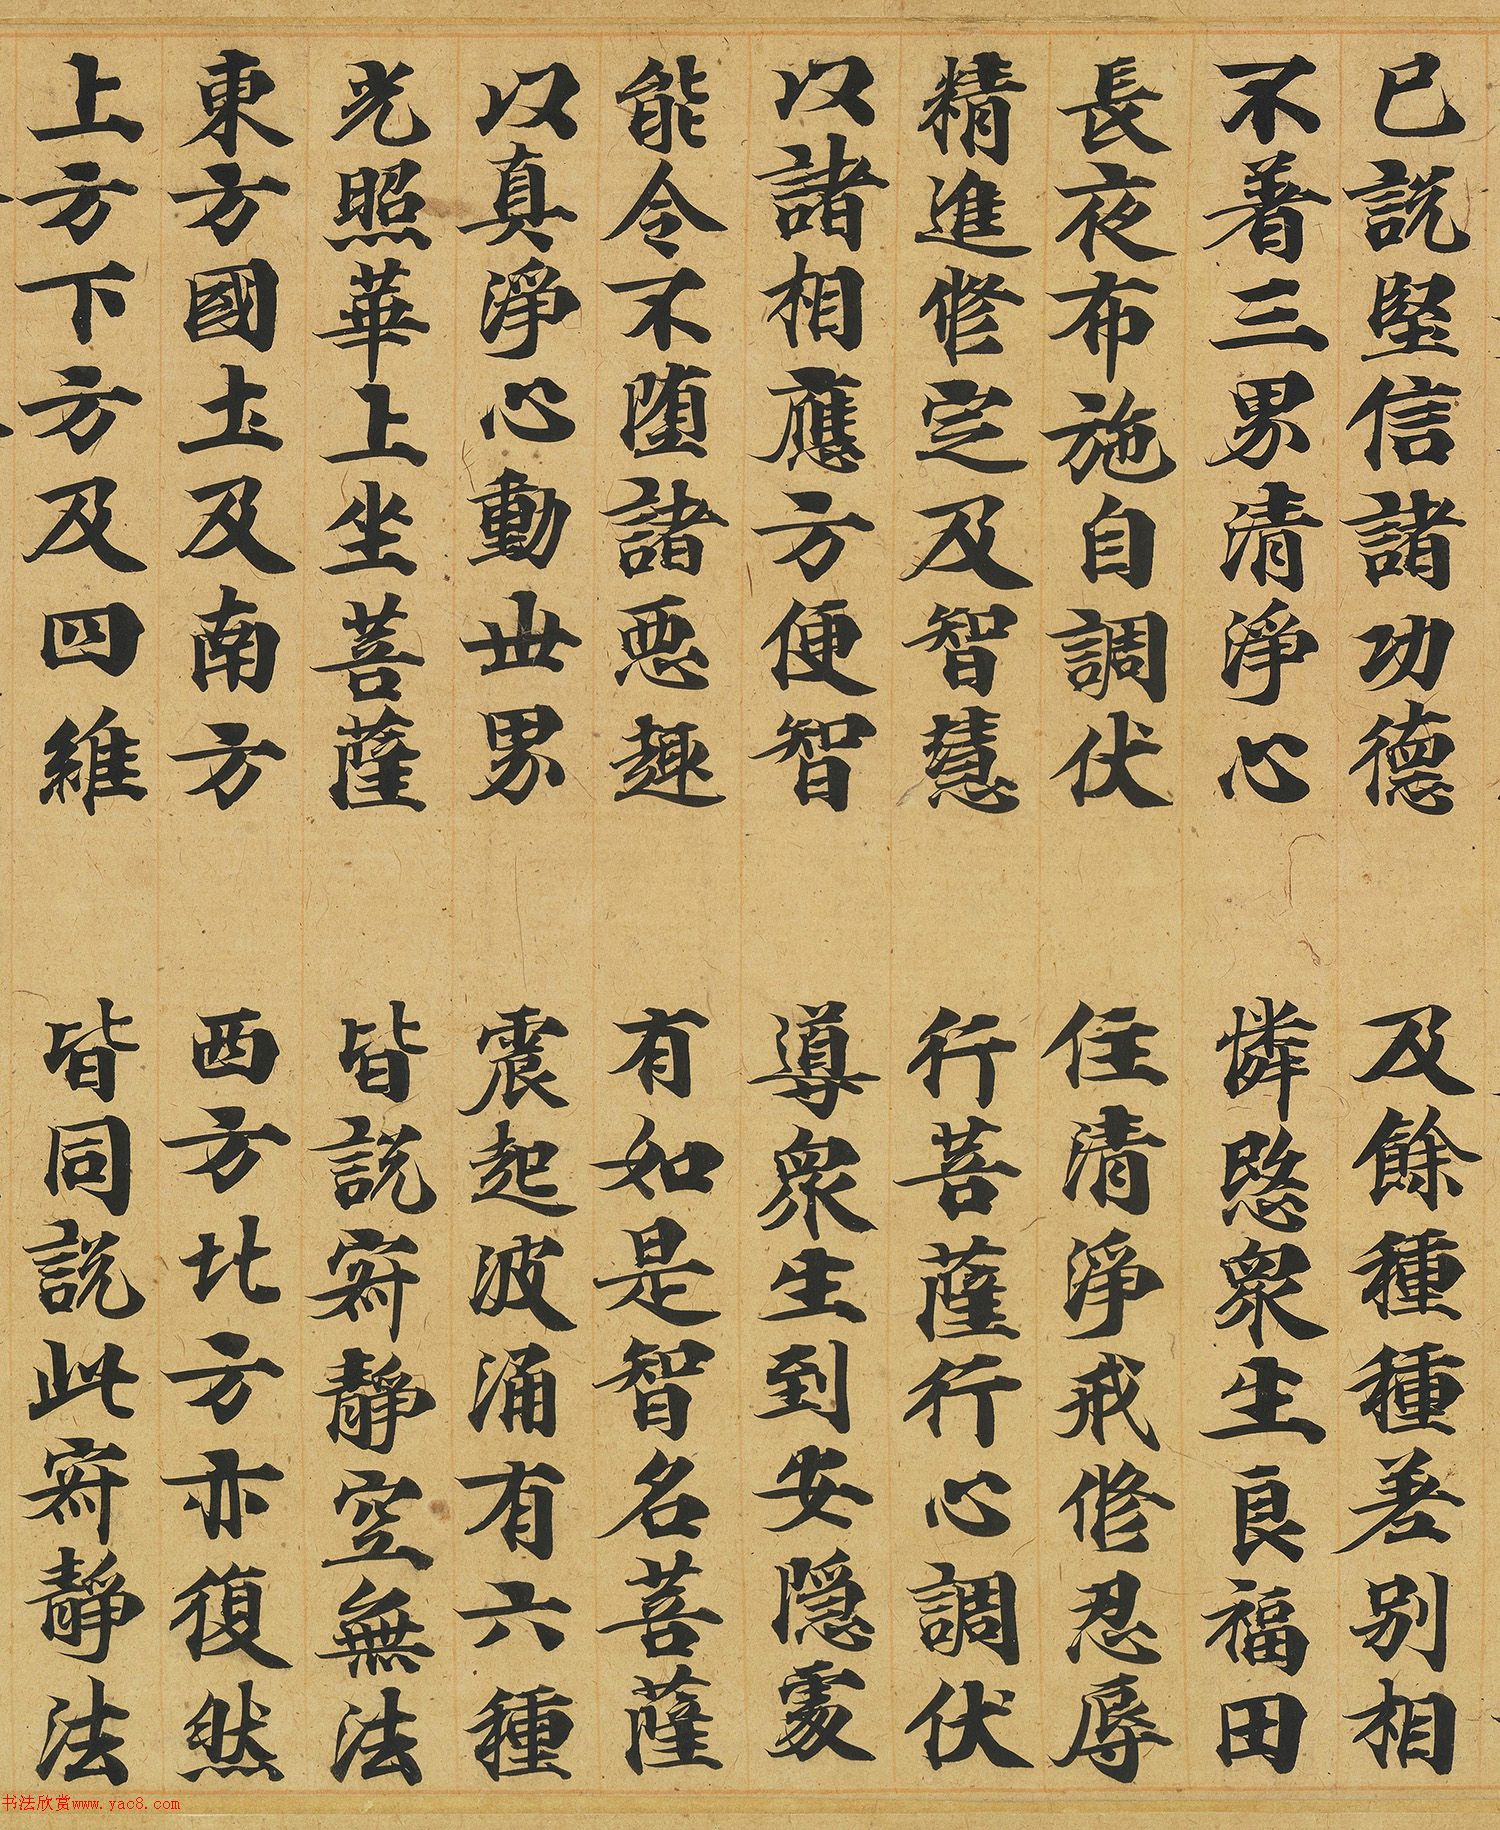 已説堅信諸功德 及餘種種差別相
不著三界清淨心 憐愍衆生良福田
長夜布施自調伏 住清淨戒修忍辱
精進修定及智慧 行菩薩行心調伏
以諸相應方便智 導衆生到安隱處
能令不墮諸惡趣 有如是智名菩薩
以真淨心動世界 震起波涌有六種
光照華上坐菩薩 皆説寂靜空無法
東方國土及南方 西方北方亦復然
上方下方及四維 皆同説此寂靜法
书法欣赏www.yac8.com